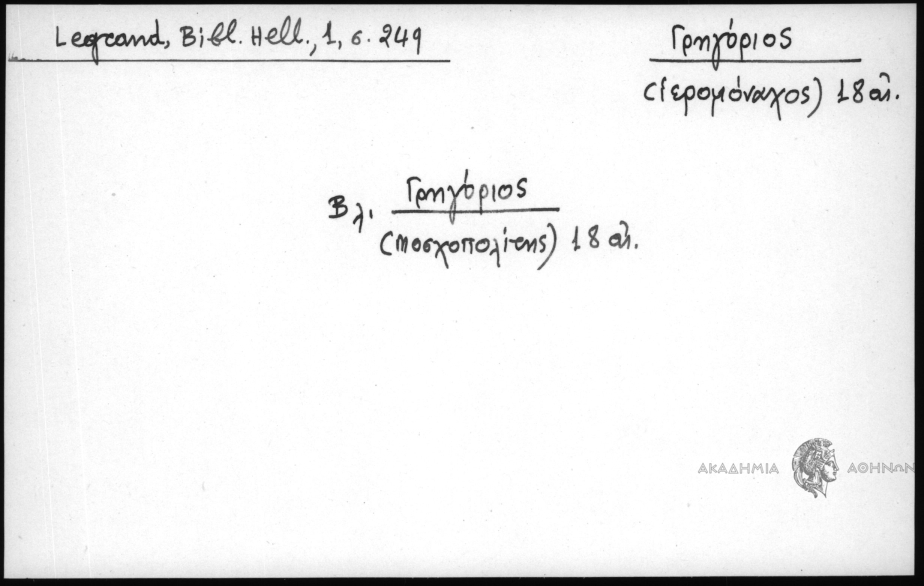 Legrand, Bibl. Hell., 1, σ. 249
Γρηγόριος
(ἱερομόναχος) 18 αἰ.
Βλ. Γρηγόριος
(Μοσχοπολίτης) 18 αἰ.
ΑΚΑΔΗΜΙΑ ΑΘΗΝΩΝ